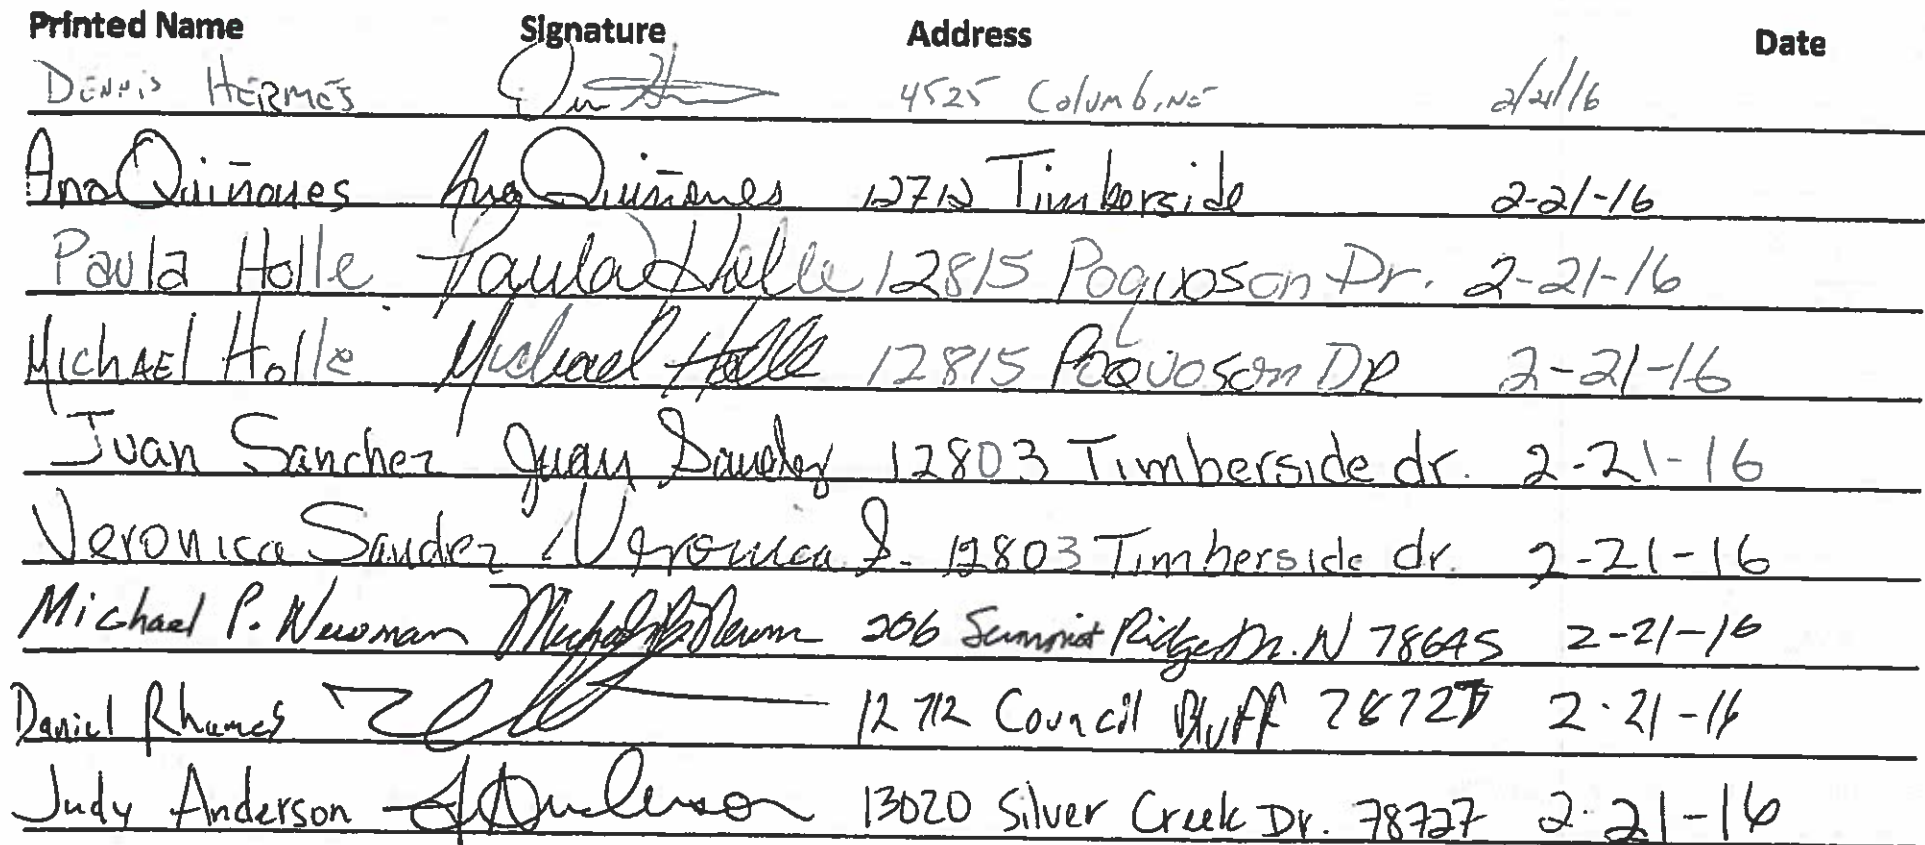 Printed Name Signature Address Date
Dennis Hermes 4525 Columbine 2/21/16
Ana Quiñones Ana Quiñones 12712 Timberside 2-21-16
Paula Holle Paula Holle 12815 Poquoson Dr. 2-21-16
Michael Holle Michael Holle 12815 Poquoson DR 2-21-16
Juan Sanchez Juan Sanchez 12803 Timberside dr. 2-21-16
Veronica Sanchez Veronica S. 12803 Timberside dr. 2-21-16
Michael P. Newman Michael P. Newman 206 Summit Ridge Dr. N 78645 2-21-16
Daniel Rhames 12712 Council Bluff 78727 2-21-16
Judy Anderson J Anderson 13020 Silver Creek Dr. 78727 2-21-16